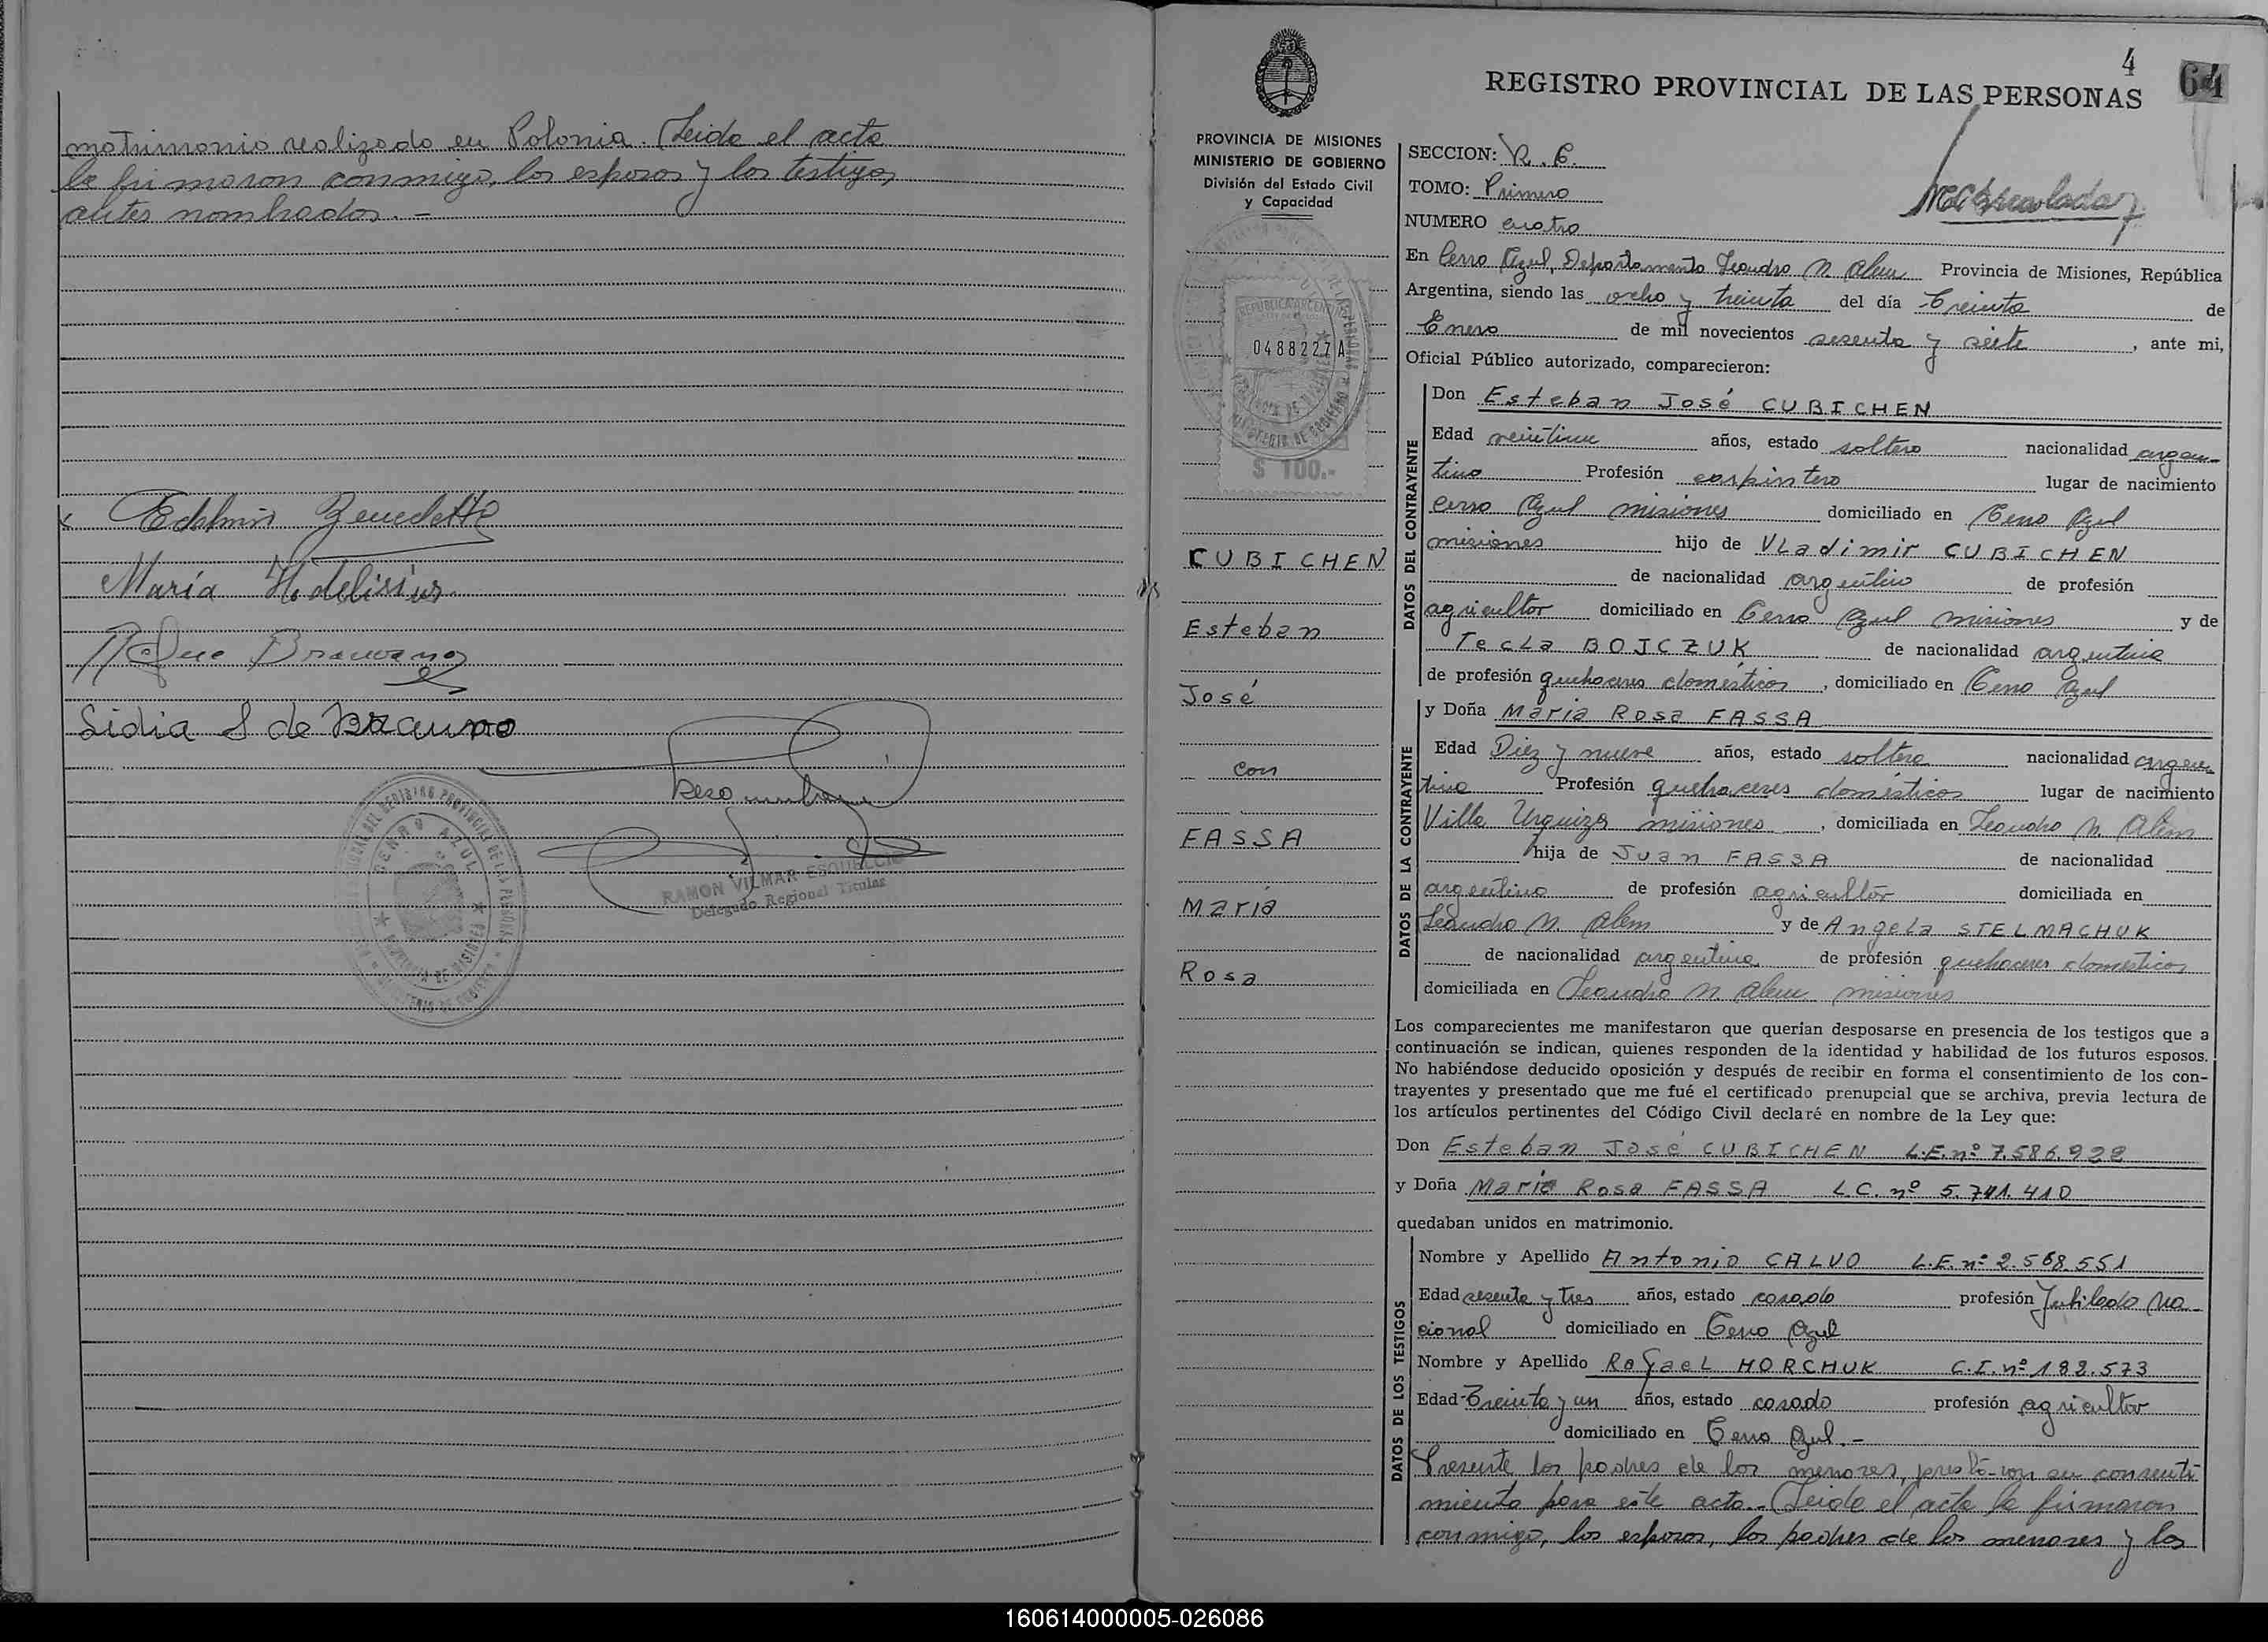 matrimonio realizado en Polonia. Leida el acta
la firmaron conmigo, los esposos y los testigos
antes nombrados. -
María
Lidia S de Brauno
CERRO AZUL
PROVINCIA DE MISIONES
RAMON VILMAR ESQUELCIE
Delegado Regional Titular
4
64
REGISTRO PROVINCIAL DE LAS PERSONAS
PROVINCIA DE MISIONES
MINISTERIO DE GOBIERNO
División del Estado Civil
y Capacidad
SECCION: R. C.
TOMO: Primero
NUMERO cuatro
En Cerro Azul, Departamento Leandro N. Alem Provincia de Misiones, República
Argentina, siendo las ocho y treinta del día treinta de
Enero de mil novecientos sesenta y siete, ante mi,
Oficial Público autorizado, comparecieron:
REPUBLICA ARGENTINA
0488227A
$ 100.-
DATOS DEL CONTRAYENTE
Don Esteban José CUBICHEN
Edad veintiun años, estado soltero nacionalidad argen-
tino Profesión carpintero lugar de nacimiento
Cerro Azul misiones domiciliado en Cerro Azul
misiones hijo de VLadimir CUBICHEN
de nacionalidad argentino de profesión
agricultor domiciliado en Cerro Azul misiones y de
TecLa BOJCZUK de nacionalidad argentina
de profesión quehaceres domésticos, domiciliado en Cerro Azul
CUBICHEN
Esteban
José
con
FASSA
María
Rosa
DATOS DE LA CONTRAYENTE
y Doña María Rosa FASSA
Edad Diez y nueve años, estado soltera nacionalidad argen
tina Profesión quehaceres domésticos lugar de nacimiento
Villa Urquiza misiones, domiciliada en Leandro N. Alem
hija de Juan FASSA de nacionalidad
argentino de profesión agricultor domiciliada en
Leandro N. Alem y de AngeLa STELMACHUK
de nacionalidad argentina de profesión quehaceres domésticos
domiciliada en Leandro N. Alem misiones
Los comparecientes me manifestaron que querían desposarse en presencia de los testigos que a
continuación se indican, quienes responden de la identidad y habilidad de los futuros esposos.
No habiéndose deducido oposición y después de recibir en forma el consentimiento de los con-
trayentes y presentado que me fué el certificado prenupcial que se archiva, previa lectura de
los artículos pertinentes del Código Civil declaré en nombre de la Ley que:
Don Esteban José CUBICHEN L.E.nº 7.586.928
y Doña María Rosa FASSA L.C. nº 5.741.410
quedaban unidos en matrimonio.
DATOS DE LOS TESTIGOS
Nombre y Apellido Antonio CALVO L.E.nº 2.568.551
Edad sesenta y tres años, estado casado profesión Jubilado Na-
cional domiciliado en Cerro Azul
Nombre y Apellido RafaeL HORCHUK C.I.nº 182.573
Edad Treinta y un años, estado casado profesión agricultor
domiciliado en Cerro Azul.-
Presente los padres de los menores, prestaron su consenti-
miento para este acto.- Leida el acta la firmaron
conmigo, los esposos, los padres de los menores y los
160614000005-026086